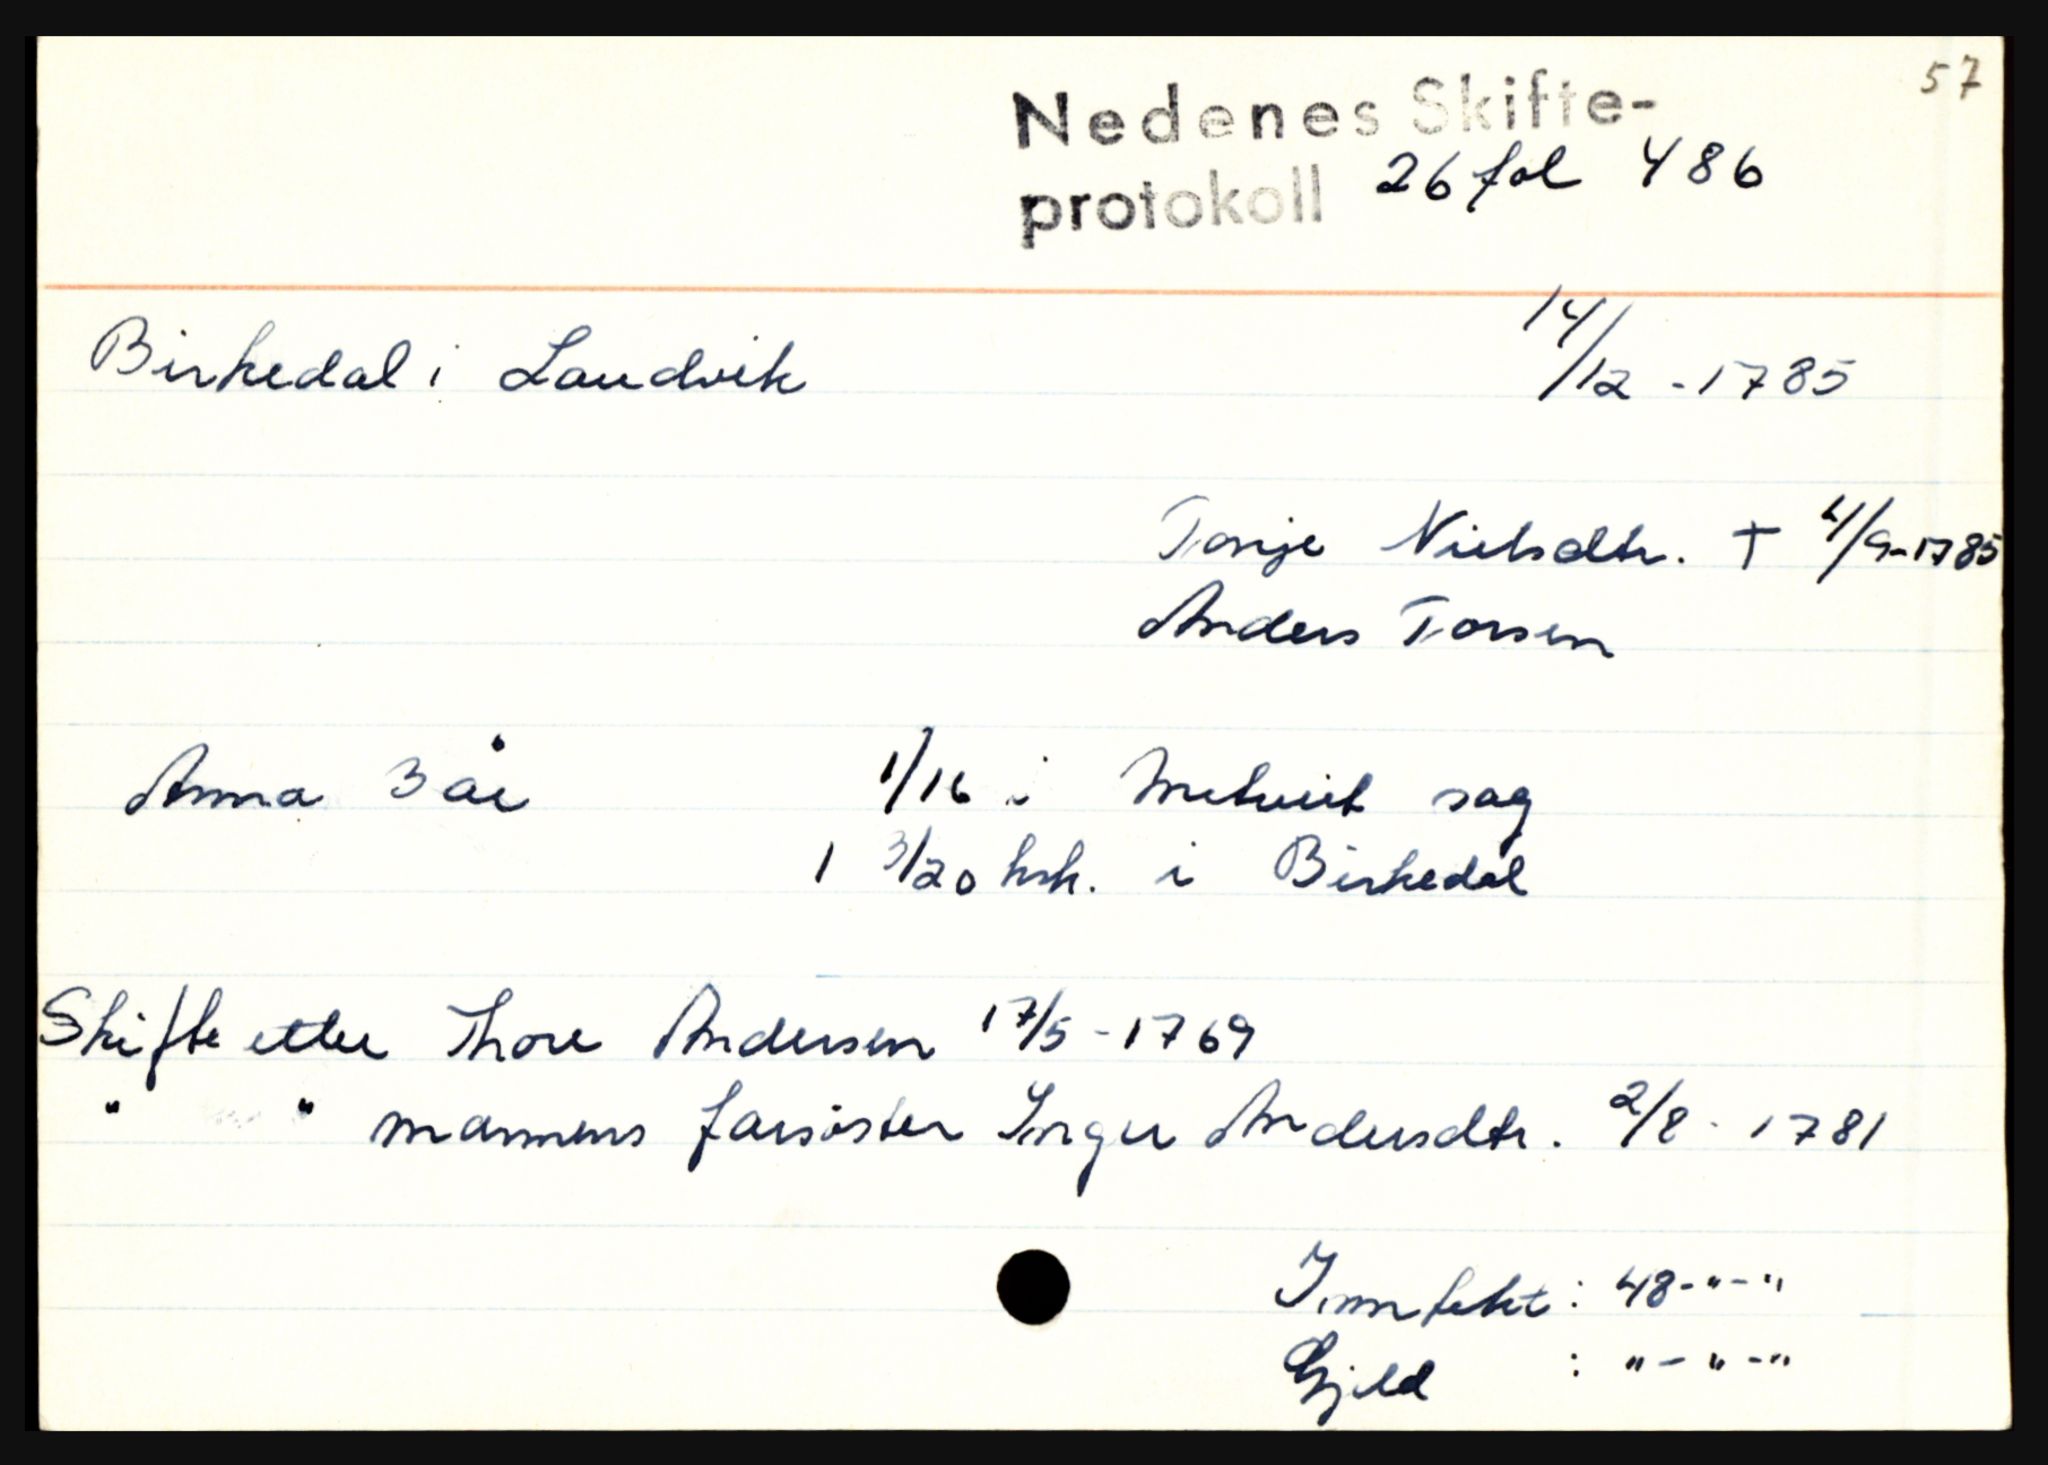 57
Nedenes Skifte-
protokoll 26 fol 486
Birkedal i Landvik 14/12 - 1785
Tonje Nielsdtr. † 4/9-1785
Anders Torsen
Anna 3 år 1/16 i sag
1 3/20 hsk. i Birkedal
Skifte etter Thore Andersen 17/5 - 1769
" " mannens farsöster Inger Andersdtr. 2/8 - 1781
Inntekt : 48-"-"
Gjeld : "-"-"